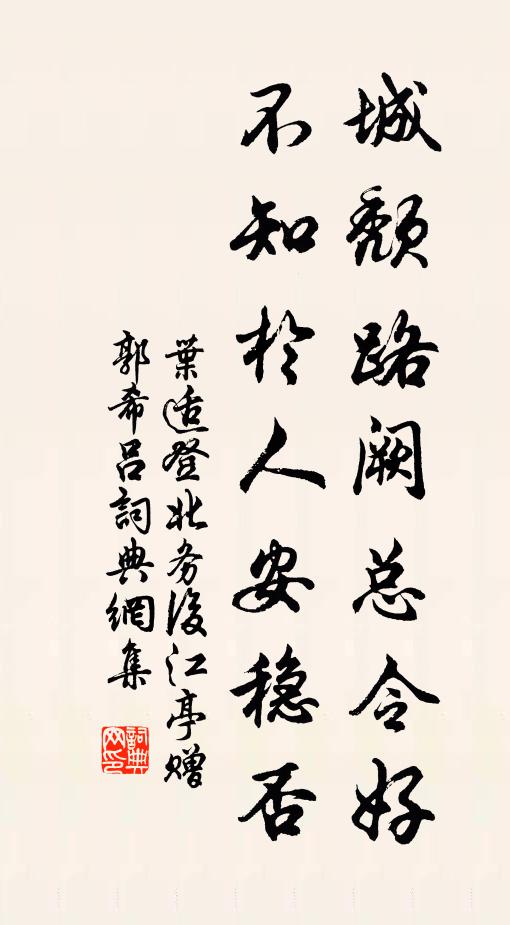 城颓路阙总令好
不知於人安稳否
葉适登北务後江亭赠
郭希吕詞典網集
詞典网印